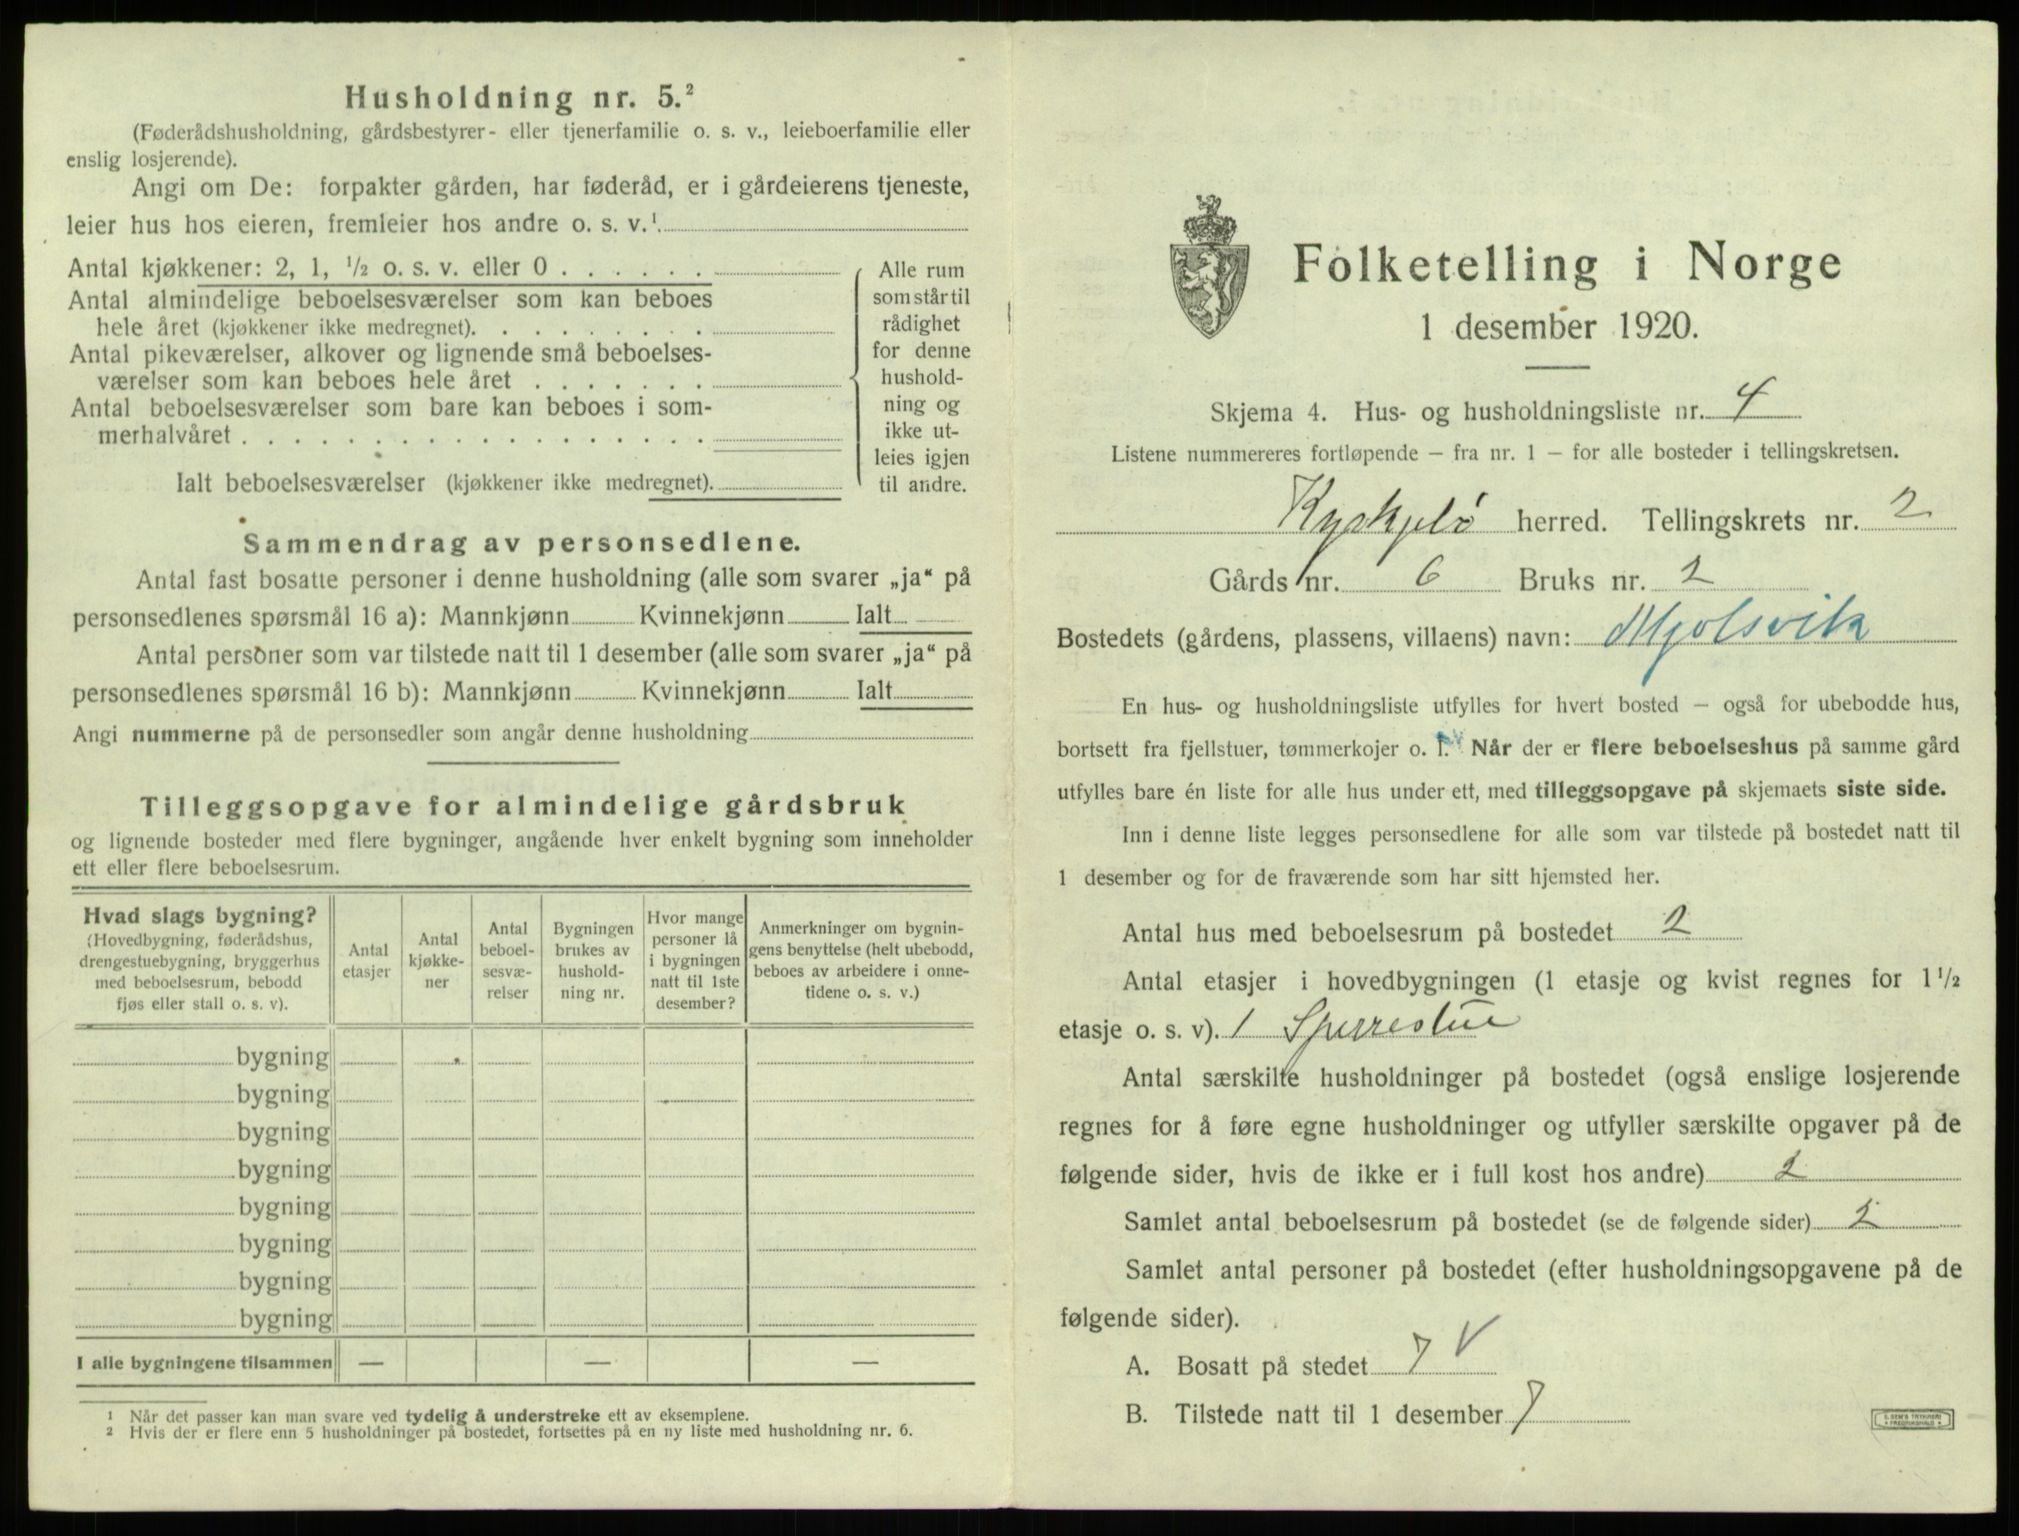 Husholdning nr. 5.²
(Føderådshusholdning, gårdsbestyrer- eller tjenerfamilie o. s. v., leieboerfamilie eller
enslig losjerende).
Angi om De: forpakter gården, har føderåd, er i gårdeierens tjeneste,
leier hus hos eieren, fremleier hos andre o. s. v.¹
Antal kjøkkener: 2, 1, ½ o. s. v. eller 0 . . . . . .
Antal almindelige beboelsesværelser som kan beboes
hele året (kjøkkener ikke medregnet). . . . . . . . .
Antal pikeværelser, alkover og lignende små beboelses-
værelser som kan beboes hele året . . . . . . .
Antal beboelsesværelser som bare kan beboes i som-
merhalvåret . . . . . . . . . . . . . . . . . .
Ialt beboelsesværelser (kjøkkener ikke medregnet).
Alle rum
som står til
rådighet
for denne
hushold-
ning og
ikke ut-
leies igjen
til andre.
Sammendrag av personsedlene.
Antal fast bosatte personer i denne husholdning (alle som svarer „ja“ på
personsedlenes spørsmål 16 a): Mannkjønn Kvinnekjønn Ialt
Antal personer som var tilstede natt til 1 desember (alle som svarer „ja“ på
personsedlenes spørsmål 16 b): Mannkjønn Kvinnekjønn Ialt
Angi nummerne på de personsedler som angår denne husholdning
Tilleggsopgave for almindelige gårdsbruk
og lignende bosteder med flere bygninger, angående hver enkelt bygning som inneholder
ett eller flere beboelsesrum.
Hvad slags bygning?
(Hovedbygning, føderådshus,
drengestuebygning, bryggerhus
med beboelsesrum, bebodd
fjøs eller stall o. s. v).
Antal
etasjer
Antal
kjøkke-
ner
Antal
beboel-
sesvæ-
relser
Bygningen
brukes av
hushold-
ning nr.
Hvor mange
personer lå
i bygningen
natt til 1ste
desember?
Anmerkninger om bygnin-
gens benyttelse (helt ubebodd,
beboes av arbeidere i onne-
tidene o. s. v.)
bygning
bygning
bygning
bygning
bygning
bygning
bygning
bygning
I alle bygningene tilsammen — — —
¹ Når det passer kan man svare ved tydelig å understreke ett av eksemplene.
² Hvis der er flere enn 5 husholdninger på bostedet, fortsettes på en ny liste med husholdning nr. 6.
Folketelling i Norge
1 desember 1920.
Skjema 4. Hus- og husholdningsliste nr. 4
Listene nummereres fortløpende – fra nr. 1 – for alle bosteder i tellingskretsen.
Kyrkjebø herred. Tellingskrets nr. 2
Gårds nr. 6 Bruks nr. 2
Bostedets (gårdens, plassens, villaens) navn: Mjolsvik
En hus- og husholdningsliste utfylles for hvert bosted – også for ubebodde hus,
bortsett fra fjellstuer, tømmerkojer o. l. Når der er flere beboelseshus på samme gård
utfylles bare én liste for alle hus under ett, med tilleggsopgave på skjemaets siste side.
Inn i denne liste legges personsedlene for alle som var tilstede på bostedet natt til
1 desember og for de fraværende som har sitt hjemsted her.
Antal hus med beboelsesrum på bostedet 2
Antal etasjer i hovedbygningen (1 etasje og kvist regnes for 1½
etasje o. s. v). 1 Sperrestue
Antal særskilte husholdninger på bostedet (også enslige losjerende
regnes for å føre egne husholdninger og utfyller særskilte opgaver på de
følgende sider, hvis de ikke er i full kost hos andre) 2
Samlet antal beboelsesrum på bostedet (se de følgende sider) 2
Samlet antal personer på bostedet (efter husholdningsopgavene på de
følgende sider).
A. Bosatt på stedet 7 V
B. Tilstede natt til 1 desember 7
E. SEM'S TRYKKERI
FREDRIKSHALD